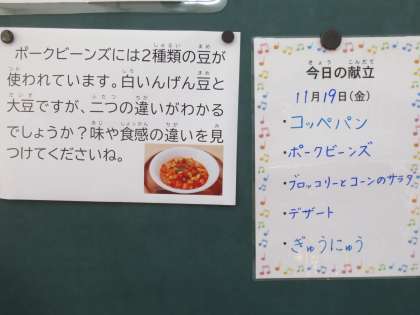 ポークビーンズには2種類の豆が
使われています。白いんげん豆と
大豆ですが、二つの違いがわかる
でしょうか？味や食感の違いを見
つけてくださいね。
今日の献立
11月19日(金)
・コッペパン
・ポークビーンズ
・ブロッコリーとコーンのサラダ
・デザート
・ぎゅうにゅう